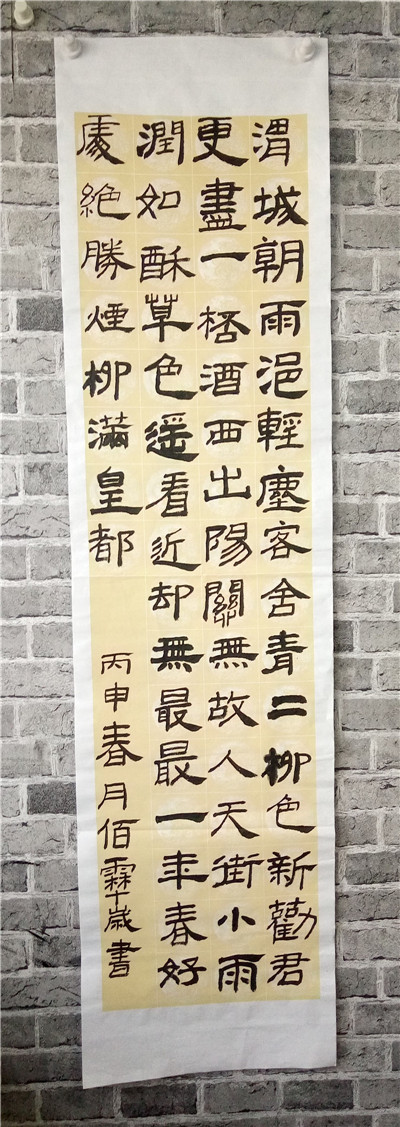 渭城朝雨浥輕塵客舍青二柳色新勸君
更盡一桮酒西出陽關無故人天街小雨
潤如酥草色遙看近却無最最一年春好
處絕勝煙柳滿皇都
丙申春月佰霖歲書